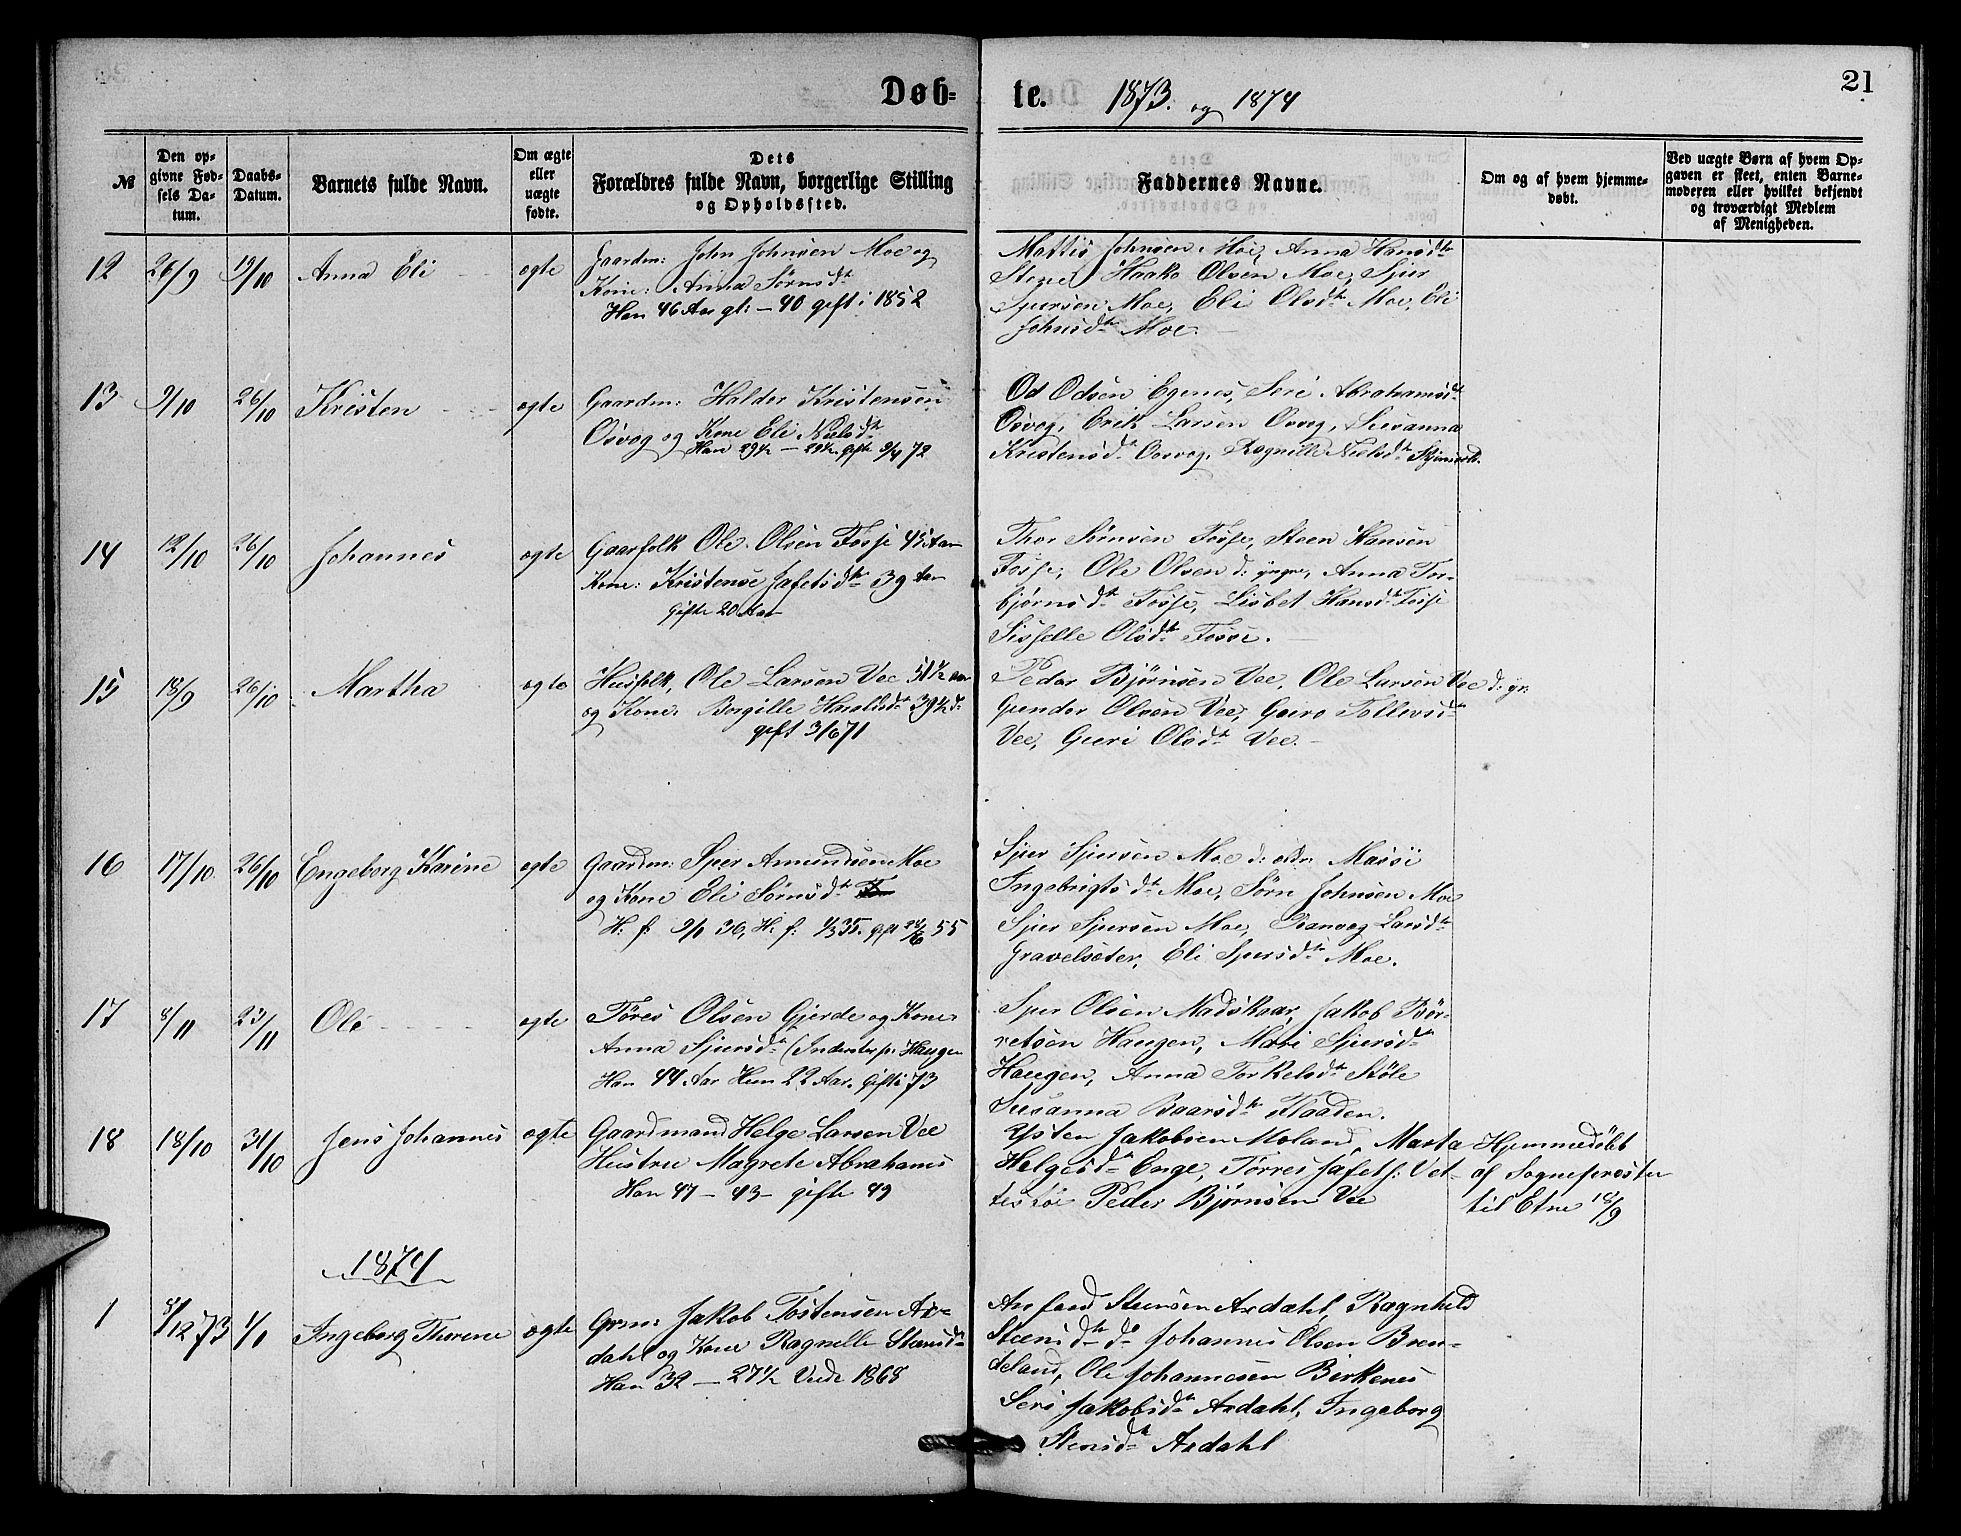 Døb-
te.
1873. og 1874
21
№
Den op-
givne Fød-
sels Da-
tum.
Daabs-
Datum.
Barnets fulde Navn.
Om ægte
eller
uægte
fødte.
Dets
Forældres fulde Navn, borgerlige Stilling
og Opholdssted.
Faddernes Navne.
Om og af hvem hjemme-
døbt.
Ved uægte Børn af hvem Op-
gaven er skeet, enten Barne-
moderen eller hvilket bekjendt
og troværdigt Medlem
af Menigheden.
12
26/9
19/10
Anna Eli
ægte
Gaardm: John Johnsen Moe og
Kone: Anna Sørnsdtr
Han 46 Aar gl: — 40 gift i 1852
Mattis Johnsen Moe, Anna Hansdtr
Haako Olsen Moe, Sjur
Sjursen Moe, Eli Olsdtr Moe, Eli
Johnsdtr Moe.
13
9/10
26/10
Kristen
ægte
Gaardm: Haldor Kristensen
Osvog og Kone Eli Nielsdtr
Han 29½ — 29½ gifte 9/4 72
Od Odsen Egenes, Seri Abrahamsdtr
Osvog, Erik Larsen Osvog, Susanna
Kristensdtr Osvog, Ragnille Nielsdtr
14
12/10
26/10
Johannes
ægte
Gaarfolk Ole Olsen Fosse 45 Aar
Kone: Kristense Jafetsdtr 39 Aar
Gifte 20 Aar
Thor Sønsen Fosse, Steen Hansen
Fosse, Ole Olsen d: yngre, Anna Tor-
bjørnsdtr Fosse, Lisbet Hansdtr Fosse
Sisselle Olsdtr Fosse.
15
18/9
26/10
Martha
ægte
Husfolk, Ole Larsen Vee 51½ aar
og Kone: Borgille Haraldsdtr 39½ d:
gift 3/6 71
Peder Bjørnsen Vee, Ole Larsen Vee d: yr:
Gunder Olsen Vee, Guro Tollevsdtr
Vee, Guri Olsdtr Vee.
16
17/10
26/10
Engeborg Karine
ægte
Gaardm: Sjur Amundsen Moe
og Kone Eli Sørnsdtr
H: f: 9/1 36, H: f: 1/3 35. gift 24/6 55
Sjur Sjursen Moe d: ældr: Massi
Ingebrigtsdtr Moe, Sørn Johnsen Moe
Sjur Sjursen Moe, Ranveg Larsdtr
Gravelseter, Eli Sjursdtr Moe.
17
8/11
23/11
Ole
ægte
Tøres Olsen Gjerde og Kone
Anna Sjursdtr (Inderster pr: Haugen
Han 44 Aar Hun 22 Aar. Gift i 73
Sjur Olsen Madskaar, Jakob Bør-
retsen Haugen, Mari Sjursdtr
Haugen, Anna Torkelsdtr Støle
Susanna Baarsdtr Flaaden.
18
18/10
31/10
Jens Johannes
ægte
Gaardmand Helge Larsen Vee
Hustru Magrete Abrahams
Han 47 — 43 — gifte 49
Østen Jakobsen Moland, Marta
Helgesdtr Enge, Tørres Jafets: Vet-
Peder Bjørnsen Vee
Hjemmedøbt
af Sognepresten
til Etne 18/9
1874
1
8/12 73
1/1
Ingeborg Thorene
ægte
Grm: Jakob Tostensen Ar-
dahl og Kone Ragnille Steensdtr
Han 32 — 27½ Viede 1868
Anfind Steensen Ardahl, Ragnhild
Steensdtr do Johannes Olsen Bren-
deland, Ole Johannesen Birkenes
Seri Jakobsdtr Ardahl, Ingeborg
Stensdtr Ardahl